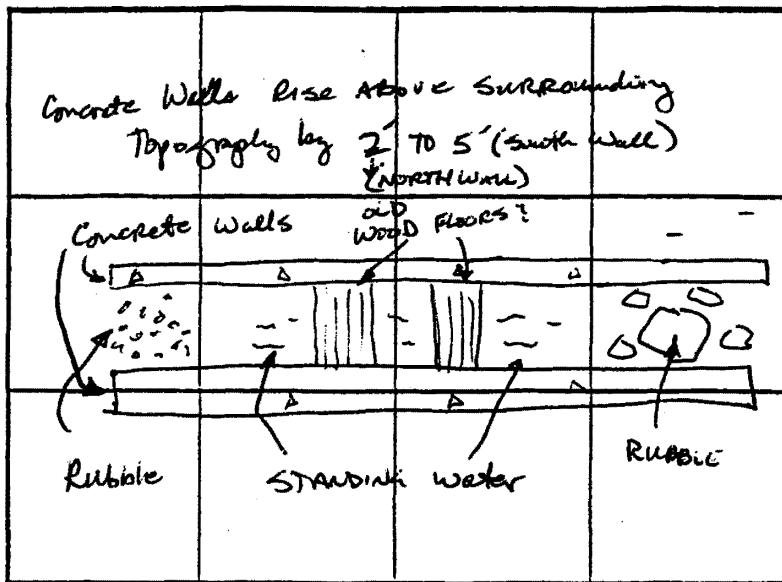 Concrete Walls Rise Above Surrounding
Topography by 2' TO 5' (South Wall)
(NORTH WALL)
Concrete Walls
OLD
WOOD FLOORS?
Rubble
STANDING Water
RUBBLE